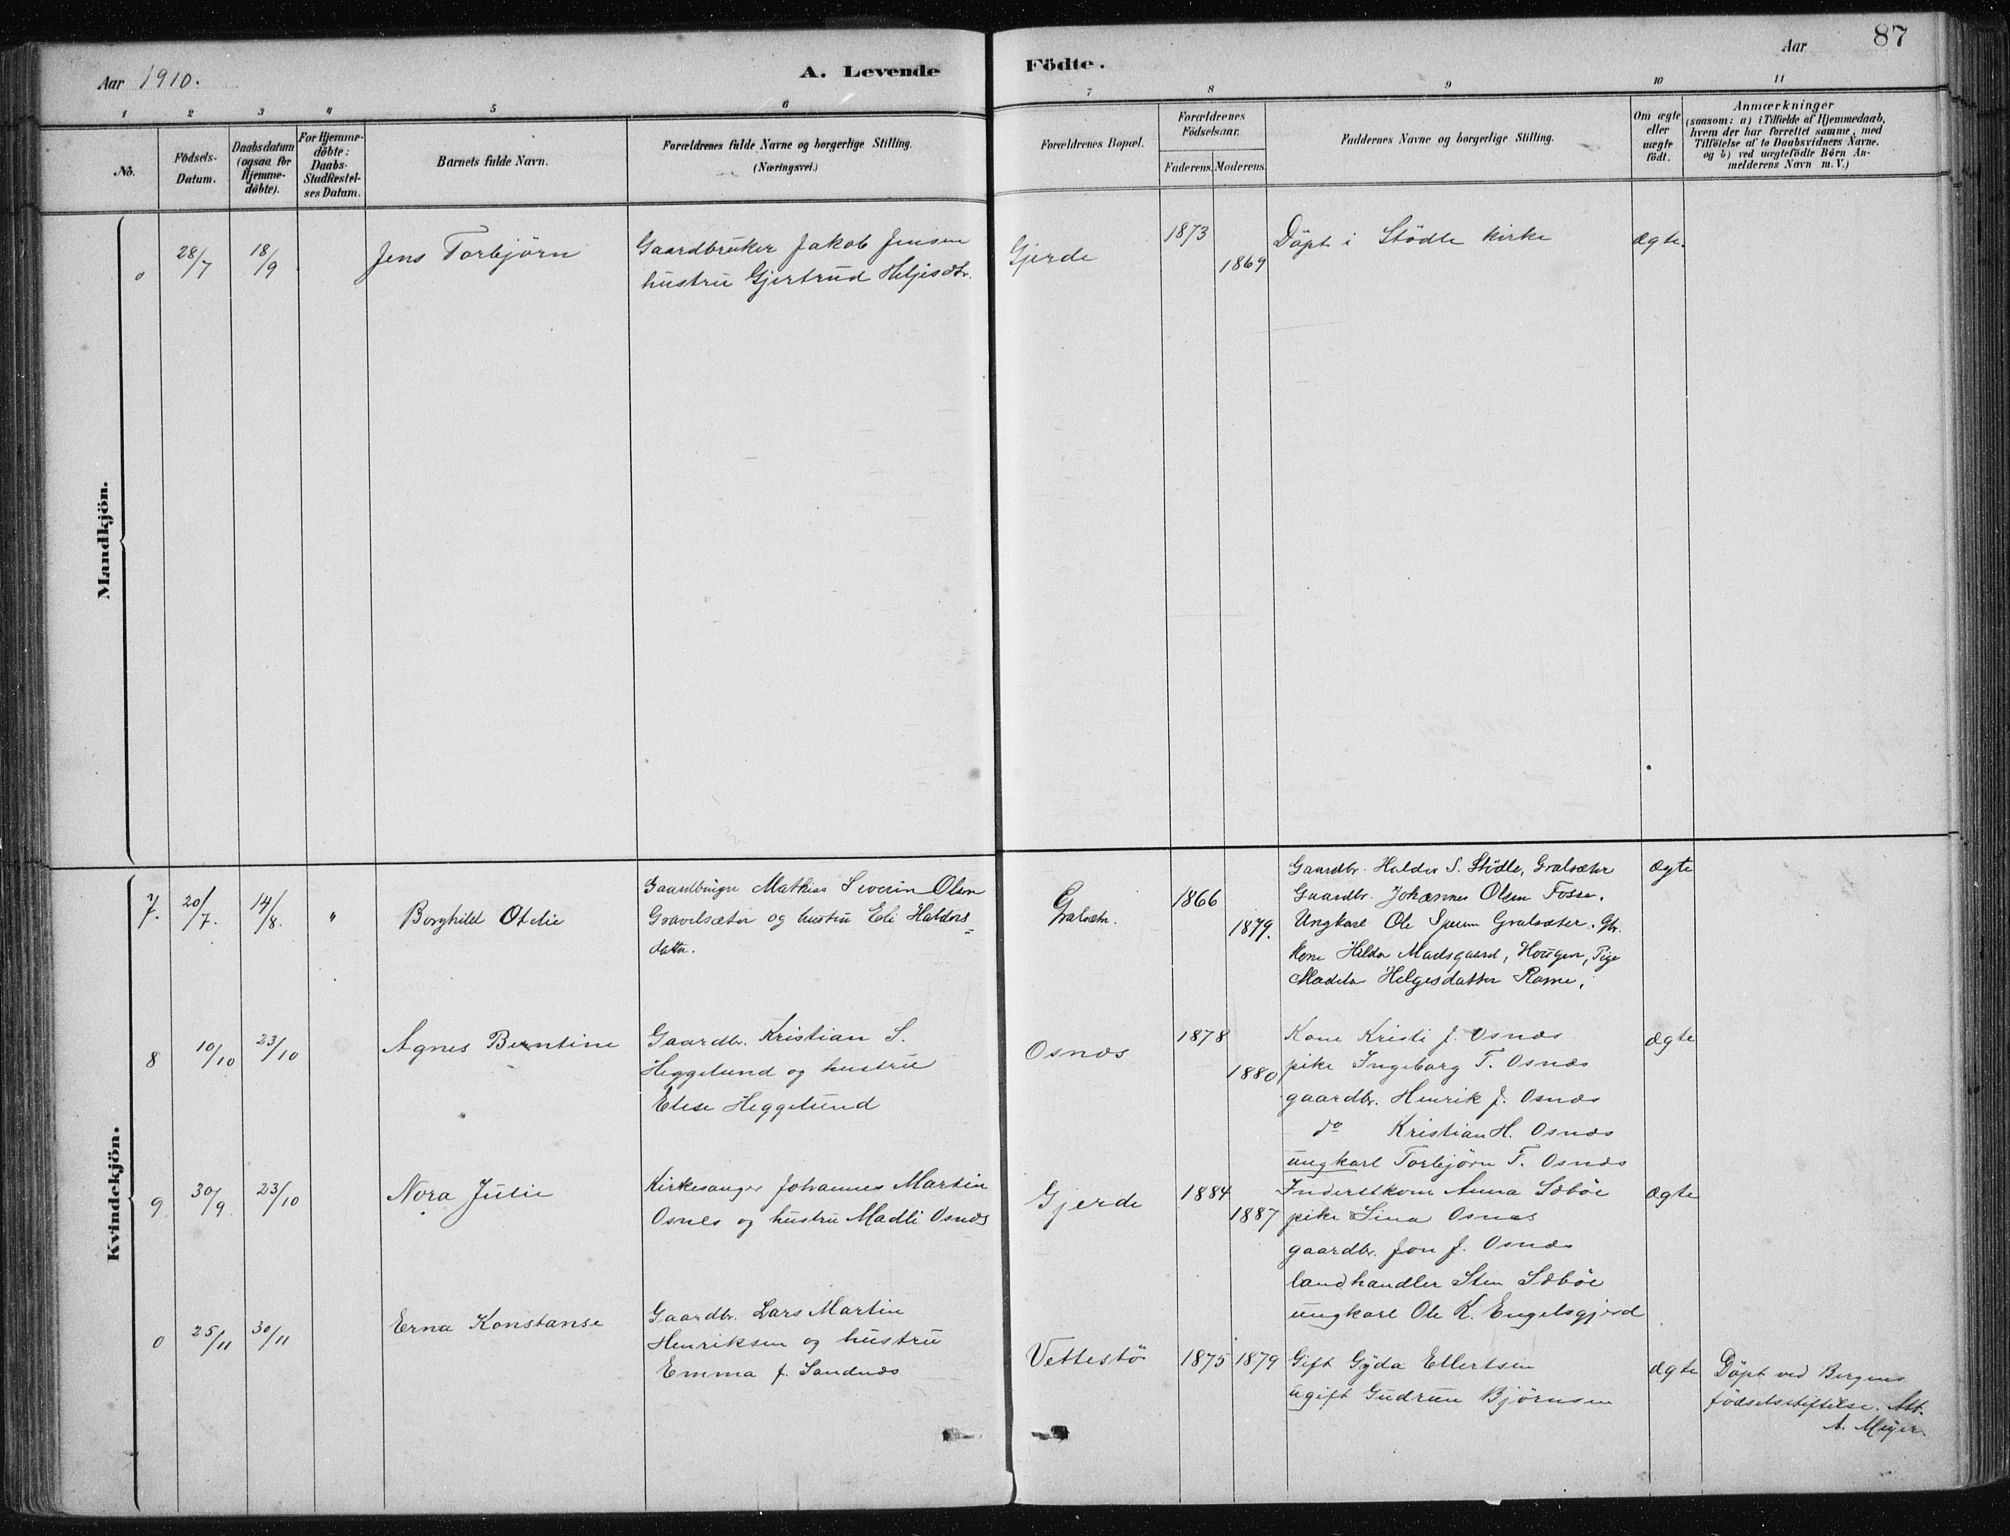 Aar 1910.
A. Levende
Födte.
Aar
87
1
2
3
4
5
6
7
8
9
10
11
No.
Födsels-
Datum.
Daabsdatum
(ogsaa for
Hjemme-
döbte).
For Hjemme-
döbte:
Daabs-
Stadfæstel-
ses Datum.
Barnets fulde Navn.
Forældrenes fulde Navne og borgerlige Stilling.
(Næringsvei.)
Forældrenes Bopæl.
Forældrenes
Födselsaar.
Faderens.
Moderens.
Faddernes Navne og borgerlige Stilling.
Om ægte
eller
uægte
födt.
Anmærkninger
(saasom: a) i Tilfælde af Hjemmedaab,
hvem der har forrettet samme, med
Tilföielse af to Daabsvidners Navne,
og b) ved uægtefödte Börn An-
melderens Navn m.V.)
Mandkjön.
0
28/7
18/9
Jens Torbjörn
Gaardbruker Jakob Jensen
hustru Gjertrud Heljesdtr.
Gjerde
1873
1869
Döpt i Stödle kirke
ægte.
Kvindekjön.
7.
20/7.
14/8.
"
Borghild Otelie
Gaardbruger Mathias Severin Olsen
Gravelsæter og hustru Eli Haldors=
datter.
Gralsætr.
1866
1879.
Gaardbr. Haldor S. Stödle, Gralsæter
Gaardbr. Johannes Olsen Fosse.
Ungkarl Ole Gralsæter. Gbr.
kone Hilda Madsgaard, Hougen, Pige
Madela Helgesdatter Rame.
ægte
8
10/10
23/10
Agnes Berntine
Gaardbr. Kristian S.
Heggelund og hustru
Elise Heggelund
Osnæs
1878
1880
Kone Kristi J. Osnæs
pike Ingeborg T. Osnæs
gaardbr. Henrik J. Osnæs
do Kristian H. Osnæs
ungkarl Torbjörn T. Osnæs
ægte
9
30/9
23/10
Nora Julie
Kirkesanger Johannes Martin
Osnes og hustru Madli Osnæs
Gjerde
1884
1887
Inderstkone Anna Sæböe
pike Lina Osnæs
gaardbr. Jon J. Osnæs
landhandler Sten Sæböe
ungkarl Ole K. Engelsgjerd
ægte
0
25/11
30/11
Erna Konstanse
Gaardbr. Lars Martin
Henriksen og hustru
Emma f. Sandnæs
Vettestö
1875
1879
Gift Gyda Ellertsen
ugift Gudrun Björnsen
ægte
Döpt ved Bergens
födselsstiftelse. Att.
A. Meyer.